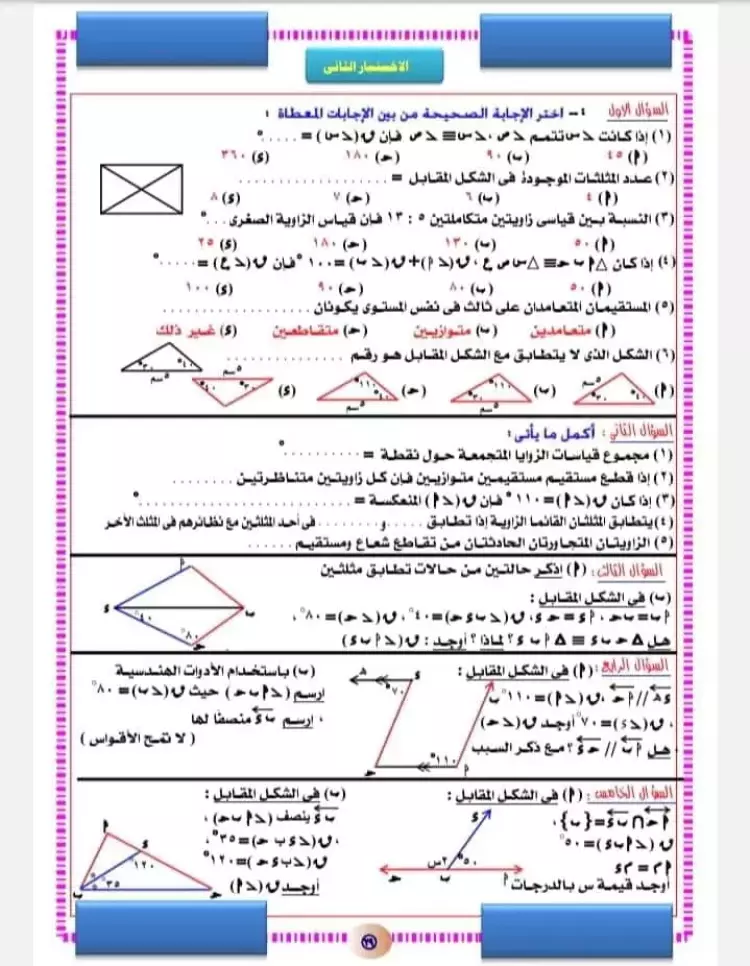 الاختبار الثانى
السؤال الأول : ٤- اختر الإجابة الصحيحة من بين الإجابات المعطاة :
(١) إذا كانت د س تتمم د ص ، د س ≡ د ص فإن ق (د س) = ......°
(أ) ٤٥ (ب) ٩٠ (حـ) ١٨٠ (ء) ٣٦٠
(٢) عدد المثلثات الموجودة فى الشكل المقابل = ..................
(أ) ٤ (ب) ٦ (حـ) ٧ (ء) ٨
(٣) النسبة بين قياسى زاويتين متكاملتين ٥ : ١٣ فإن قياس الزاوية الصغرى ....°
(أ) ٥٠ (ب) ١٣٠ (حـ) ١٨٠ (ء) ٢٥
(٤) إذا كان △ أ ب حـ ≡ △ س ص ع ، ق (د أ) + ق (د ب) = ١٠٠° فإن ق (د ع) = ......°
(أ) ٥٠ (ب) ٨٠ (حـ) ٩٠ (ء) ١٠٠
(٥) المستقيمان المتعامدان على ثالث فى نفس المستوى يكونان ..................
(أ) متعامدين (ب) متوازيين (حـ) متقاطعين (ء) غير ذلك
(٦) الشكل الذى لا يتطابق مع الشكل المقابل هو رقم ............
٣٠° ٤٠° ٥سم
(أ) ٥سم ٣٠° ٤٠° (ب) ١١٠° ٣٠° ٥سم (حـ) ١١٠° ٤٠° ٥سم (ء) ٥سم ٤٠° ٣٠°
السؤال الثانى : أكمل ما يأتى :
(١) مجموع قياسات الزوايا المتجمعة حول نقطة = ............°
(٢) إذا قطع مستقيم مستقيمين متوازيين فإن كل زاويتين متناظرتين ............
(٣) إذا كان ق (د أ) = ١١٠° فإن ق (د أ) المنعكسة = ..................°
(٤) يتطابق المثلثان القائما الزاوية إذا تطابق ...... و ........ فى أحد المثلثين مع نظائرهم فى المثلث الأخر
(٥) الزاويتان المتجاورتان الحادثتان من تقاطع شعاع ومستقيم ......
السؤال الثالث : (أ) إذكر حالتين من حالات تطابق مثلثين
(ب) فى الشكل المقابل :
أ ب = ب حـ ، أ ء = حـ ء ، ق (د ب ء حـ) = ٤٠° ، ق (د حـ) = ٨٠° ،
هل △ حـ ب ء ≡ △ أ ب ء ؟ لماذا ؟ أوجد : ق (د أ ب ء)
أ ء ب حـ ٤٠° ٨٠°
السؤال الرابع : (أ) فى الشكل المقابل :
ء هـ // أ حـ ، ق (د أ) = ١١٠°
، ق (د ء) = ٧٠° أوجد ق (د حـ)
هل أ ب // حـ ء ؟ مع ذكر السبب
هـ ء ٧٠° ب حـ ١١٠° أ
(ب) باستخدام الأدوات الهندسية
إرسم (د أ ب حـ) حيث ق (د ب) = ٨٠°
، إرسم ب ء منصفًا لها
( لا تمح الأقواس )
السؤال الخامس : (أ) فى الشكل المقابل :
أ حـ ∩ ب ء = {ب} ،
ق (د أ ب ء) = ٥٠°
أ م = م ء
أوجد قيمة س بالدرجات
ء ٥٠° ٢س حـ ب أ
(ب) فى الشكل المقابل :
ب ء ينصف (د أ ب حـ) ،
، ق (د ء ب حـ) = ٣٥° ،
ق (د ب ء حـ) = ١٢٠°
أوجد ق (د أ)
أ ء ١٢٠° ٣٥° ب حـ